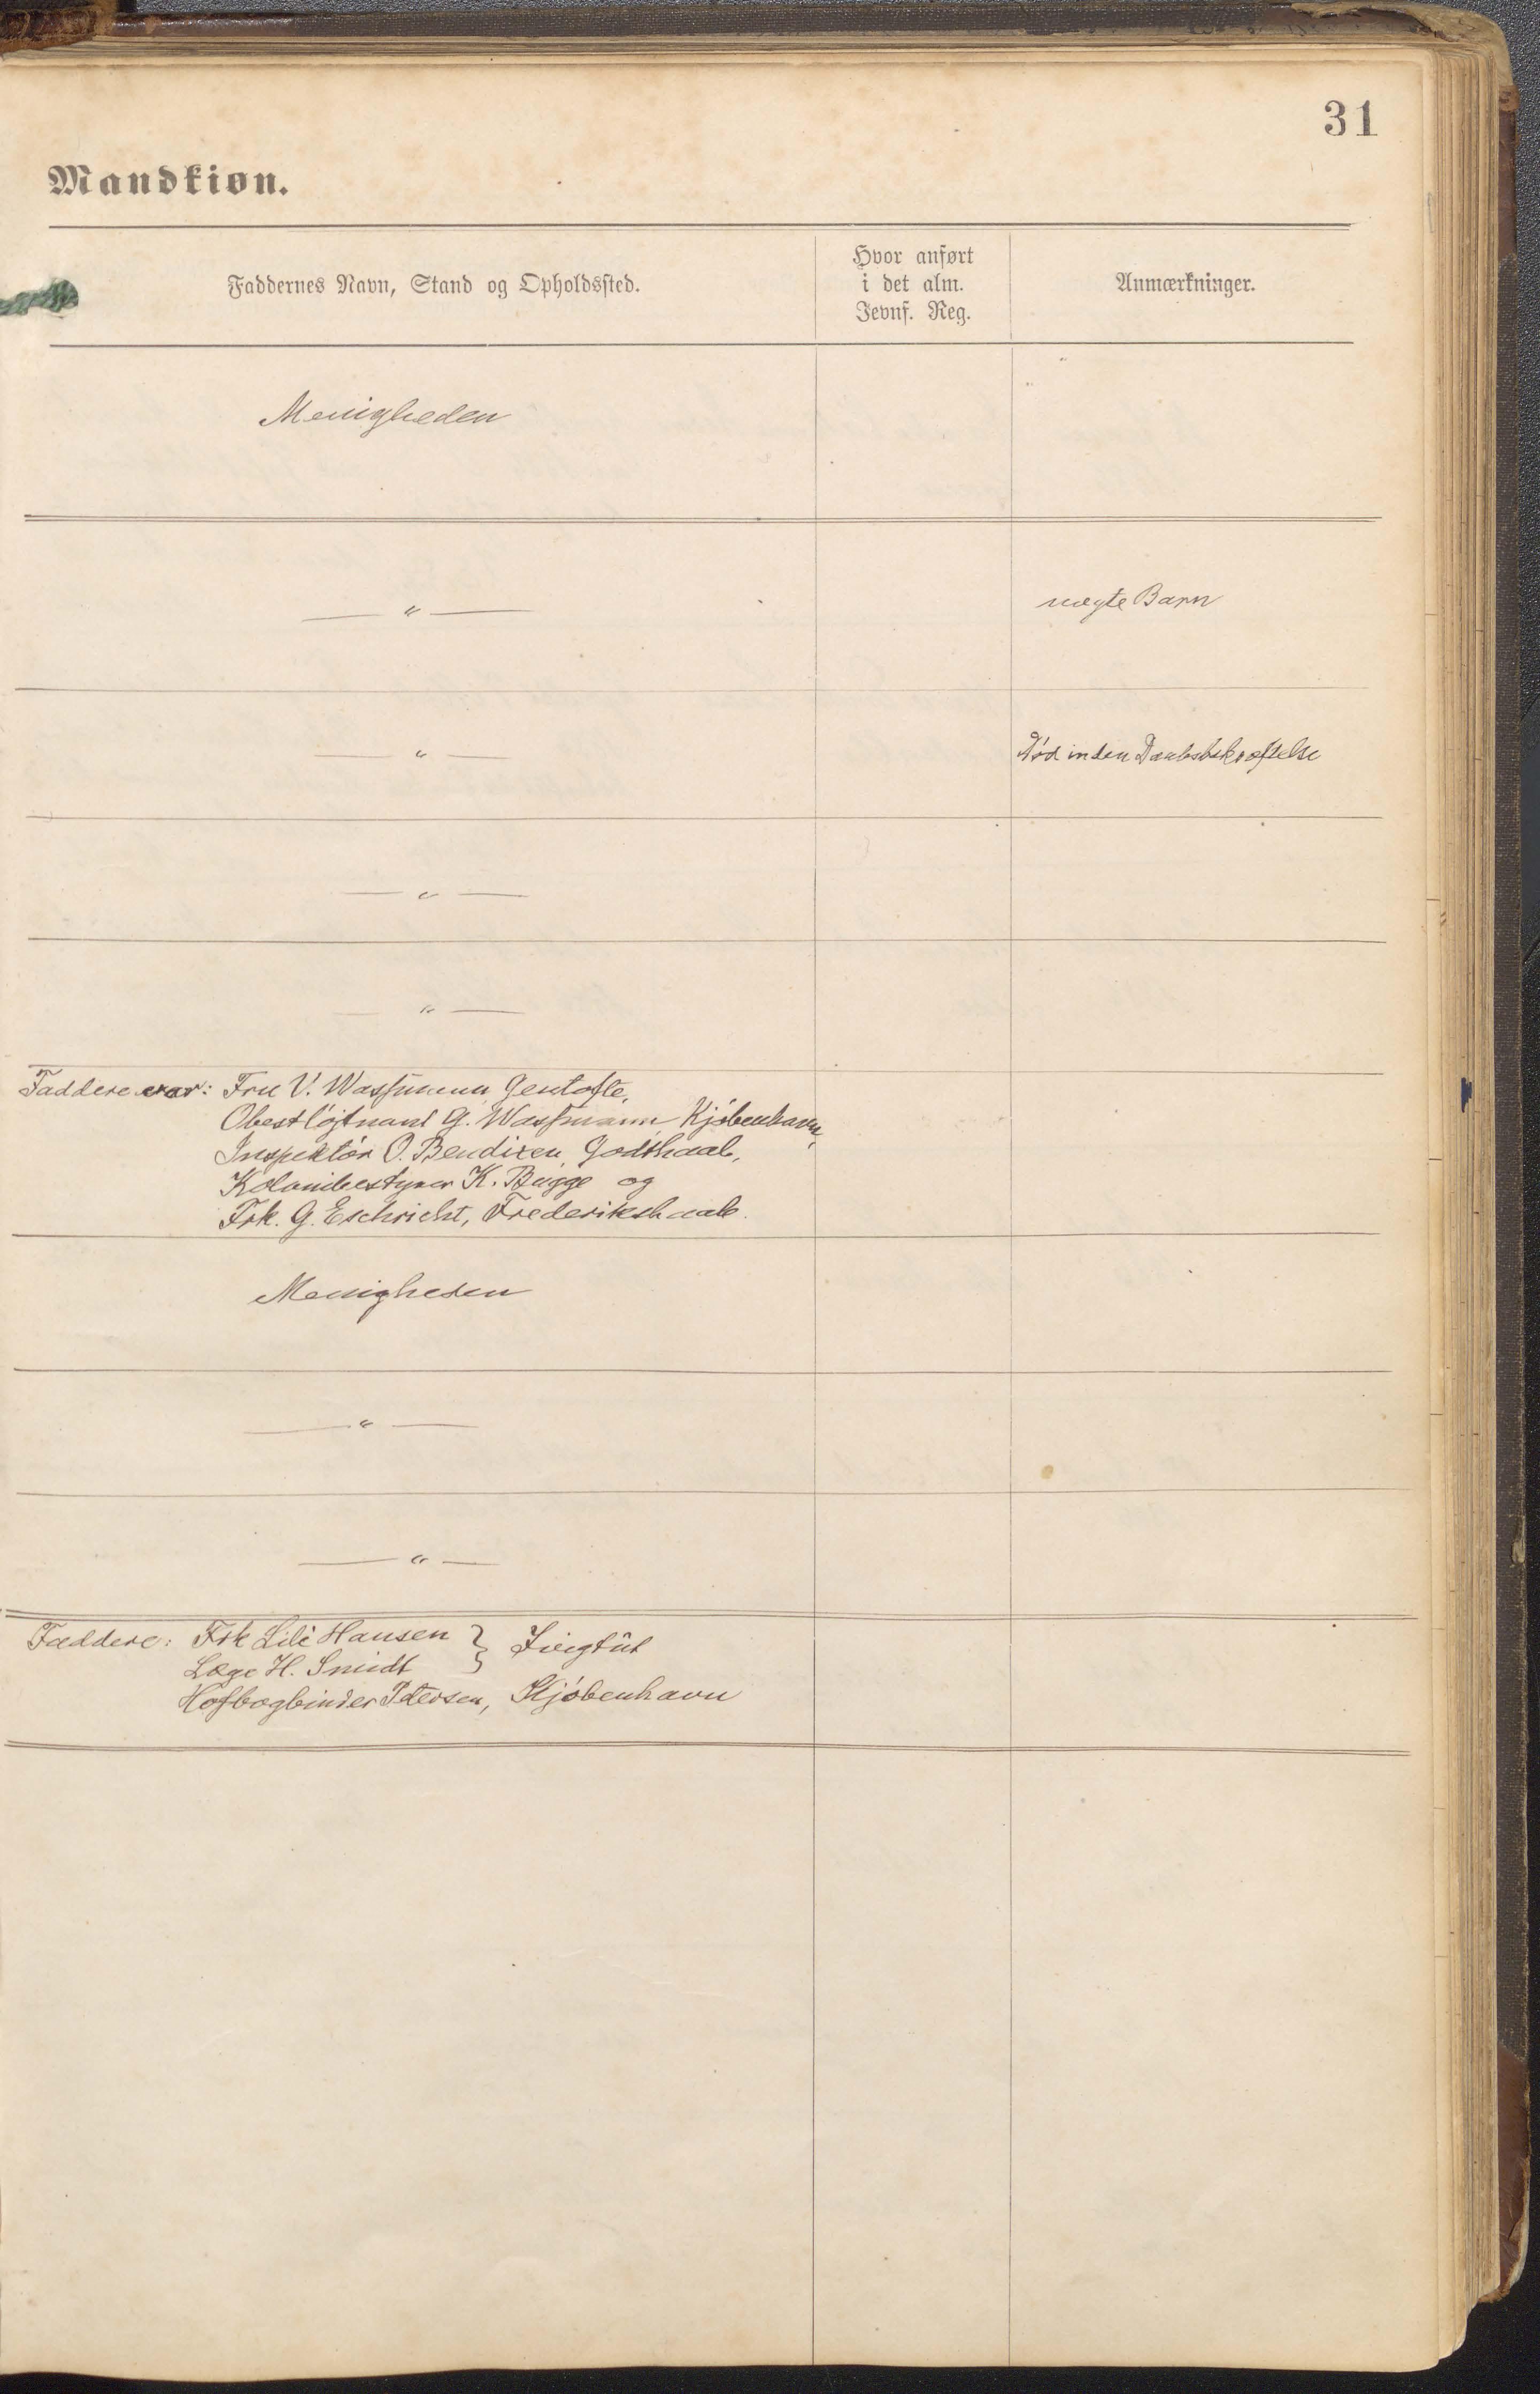 31
Mandkiøn.
Faddernes Navn, Stand og Opholdssted.
Hvor anført
i det alm.
Jevnf. Reg.
Anmærkninger.
Menigheden
— " —
uægte Barn
— " —
Død inden Daabsbekræftelse
— " —
— " —
Faddere var: Fru V. Wassmann, Gentofte,
Obestløjtnant G. Wassmann, Kjøbenhavn,
Inspektør O. Bendixen, Godthaab,
Kolonibestyrer K. Bugge og
Frk. G. Eschricht, Frederikshaab.
Menigheden
— " —
— " —
Faddere: Frk Lili Hansen } Ivigtût
Læge H. Smidt
Hofbogbinder Petersen, Kjøbenhavn